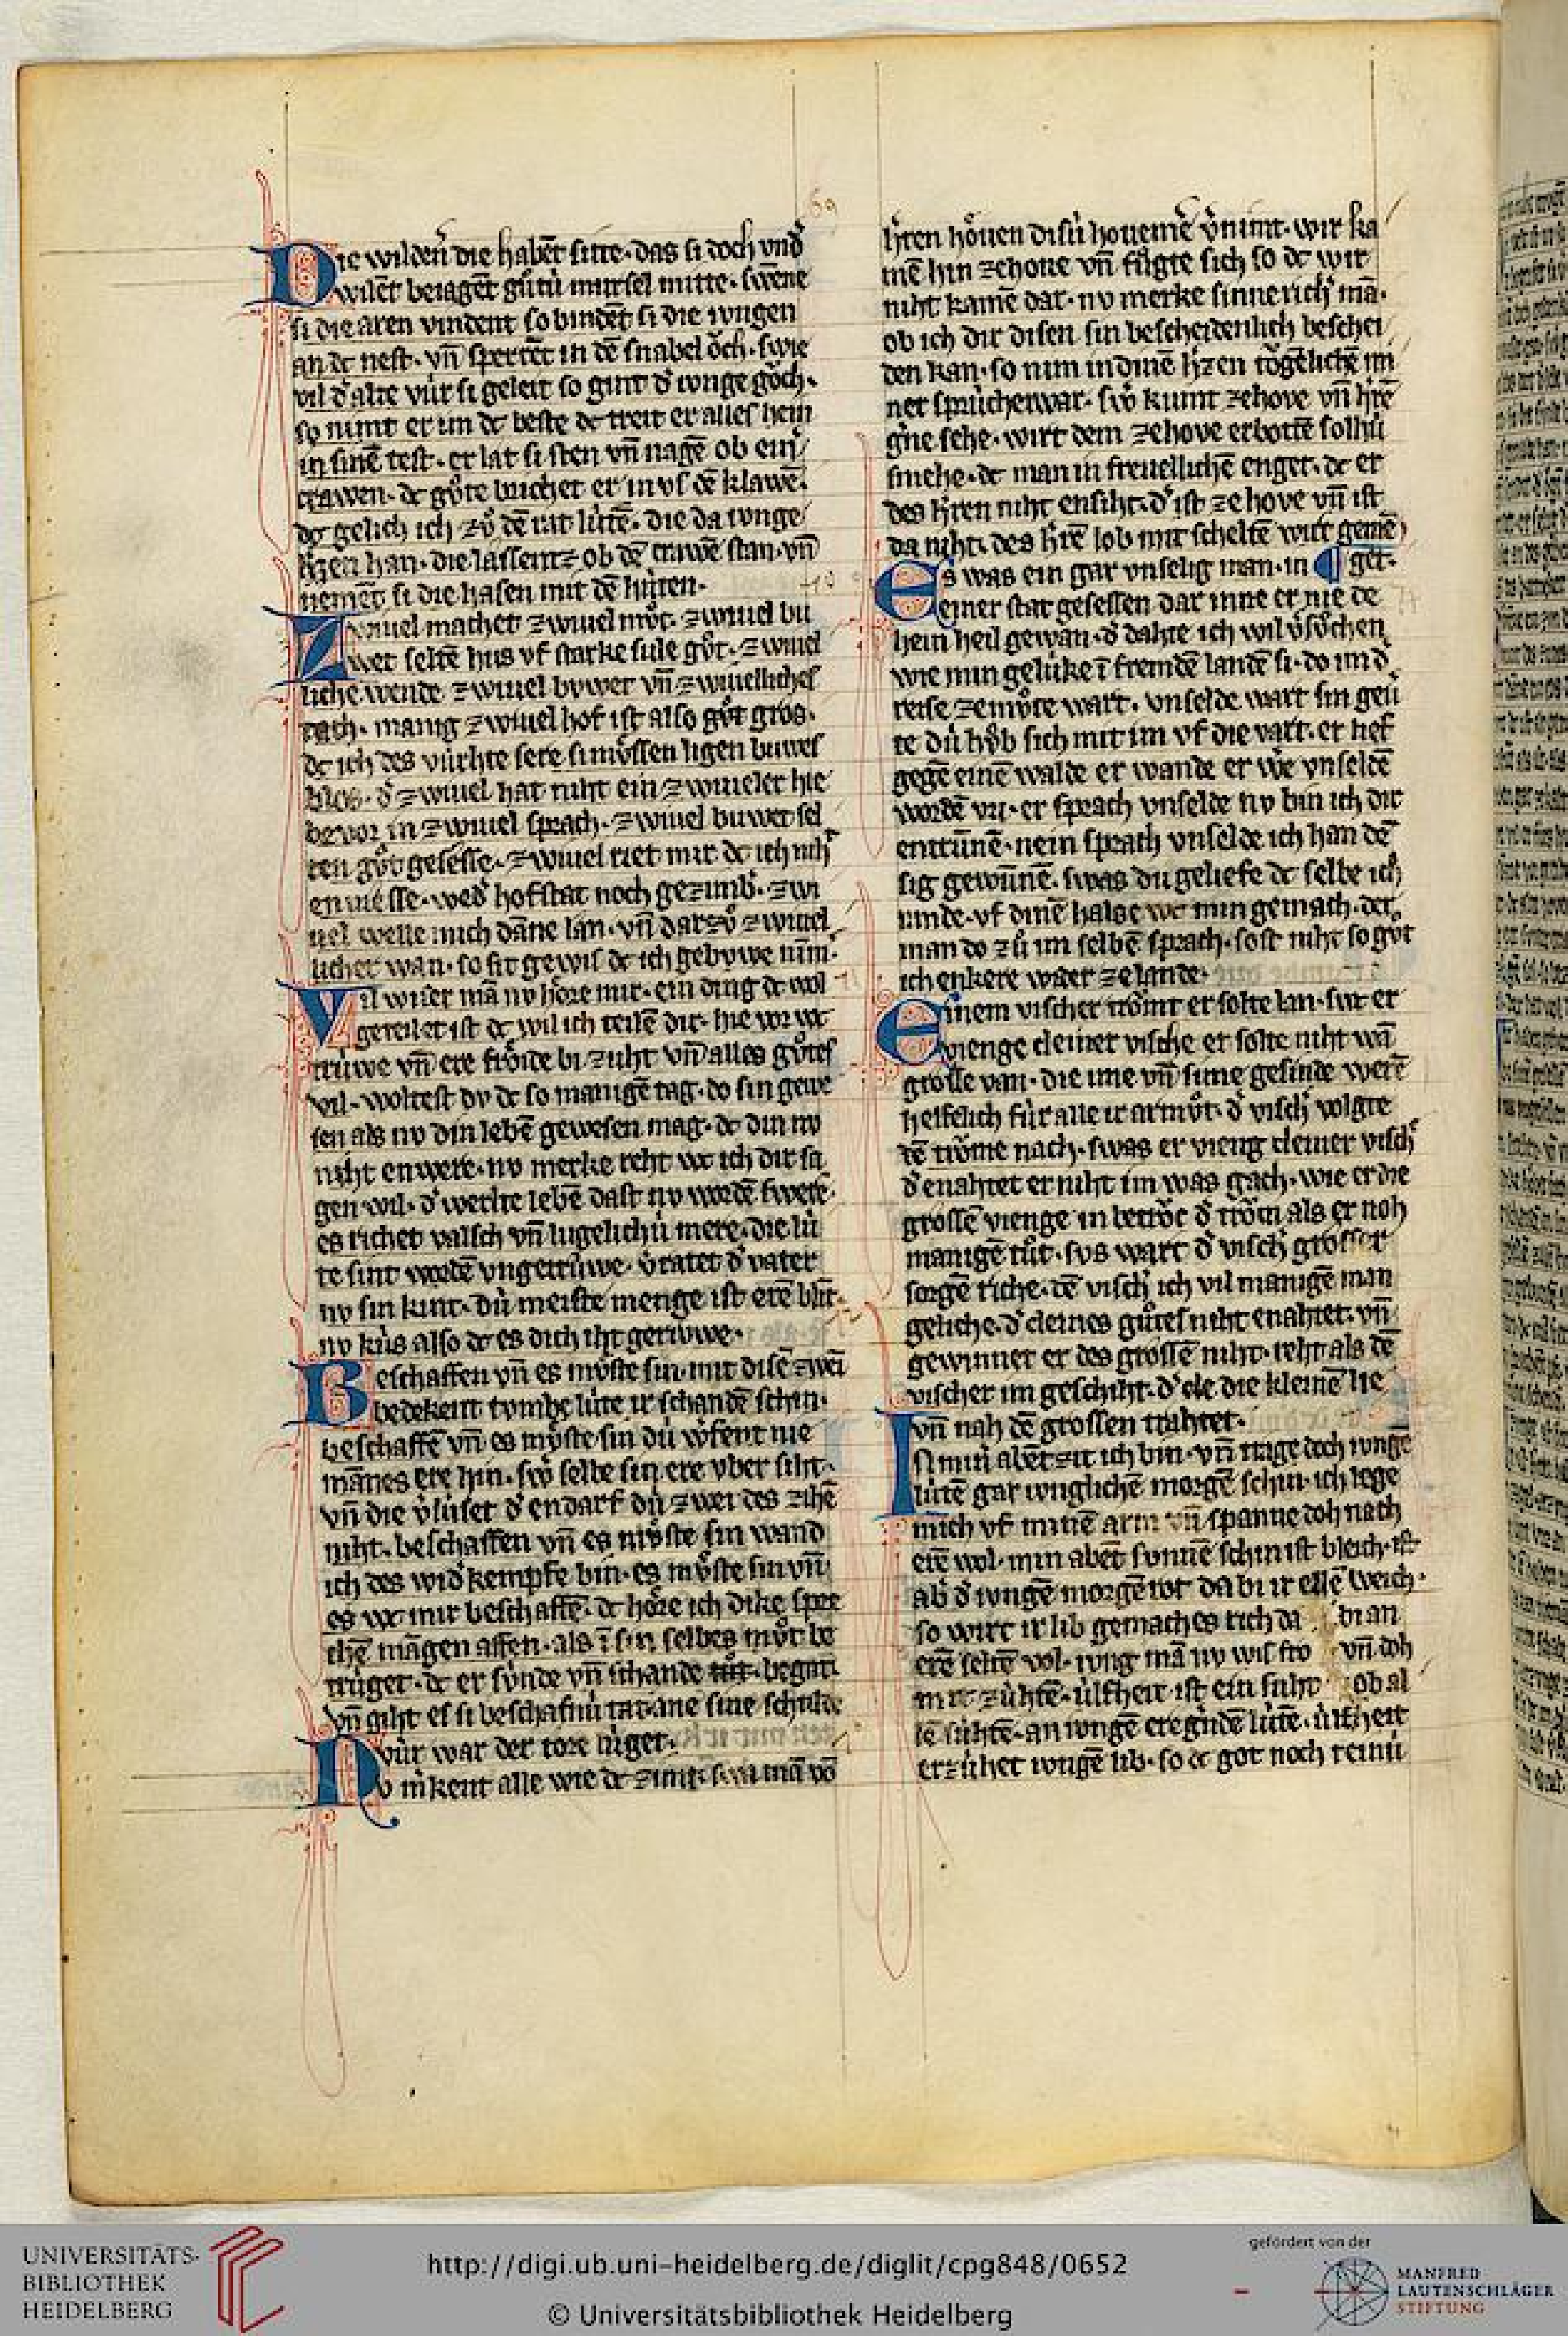 Die wildenͤr die habēt sitte· das si doch vnđ
wilēt beiagēt gůtù mursel mitte· swēne
si die aren vindent so bindēt si die ivngen
an dc nest· vn̄ sperrēt in dē snabel och· swie
vil đ alte vùr si geleit so gint đ ivnge goch·
so nimt er im dc beste dc treit er alles hein
in sinē nest· er lat si sten vn̄ nagē ob ein
crawen· dc gůte brichet er in vs dē klawē·
dc gelich ich zů dē rat lùtē· die da ivnge
h̓zen han· die lassent ob dē crawē stan· vn̄
nemēt si die hasen mit dē hùten·
Zwiuel machet zwiuel můt· zwiuel bu
wet seltē hus vf starke sule gůt· zwiuel
liche wende zwiuel bvwer vn̄ zwiuelliches
dach· manig zwiuel hof ist also gůt gros·
dc ich des vùrhte sere si mùssen ligen buwes
blos· đ zwiuel hat niht ein zwiueler hie
bevor in zwiuel sprach· zwiuel buwet sel
ten gůt gesesse· zwiuel riet mir dc ich nih
en messe· weđ hofstat noch gezimb̓· zwi
uel welle mich dāne lan· vn̄ darzů zwiuel
licher wan· so sit gewis dc ich gebvwe nim̄·
Vil wiser mā nv hore mir· ein ding dc wol
geteilet ist dc wil ich teilē dir· hie vor wc
trùwe vn̄ ere froide bi zuht vn̄ alles gůtes
vil· woltest dv dc so manigē tag· do sin gewe
sen als nv din lebē gewesen mag· dc din nv
niht enwere· nv merke reht wc ich dir sa
gen wil· đ werlte lebē dast nv wordē swere·
es richet valsch vn̄ lugelichù mere· die lù
te sint wordē vngetrùwe· v̓ratet đ vater
nv sin kint· dù meiste menge ist erē blit·
nv kùs also dc es dich iht geriwe·
Beschaffen vn̄ es mùste sin· mit disē zwei
bedekent tvmbe lùte ir schandē schin·
beschaffē vn̄ es mùste sin dù v̓fent nie
mānes ere hin· sw̓ selbe sin ere vber siht·
vn̄ die v̓lùset đ endarf dù zwei des zihē
niht· beschaffen vn̄ es můste sin wand
ich des wiđ kempfe bin· es můste sin vn̄
es wc mir beschaffē· dc hore ich dike spre
chē mangen affen· als ī sin selbes můt be
trùget· dc er sùnde vn̄ schande tůt begati
vn̄ giht es si beschafnù tat ane sine schulde
vùr war der tore lùget·
Nv m̓kent alle wie dc zimt· swa mā vō
h̓ren hōuen disù houemē v̓nimt· wir ka
mē hin zehoue vn̄ fùgte sich so dc wir
niht kamē dar· nv merke sinnerich̓ mā·
ob ich dir disen sin bescheidenlich beschei
den kan· so nim in dinē h̓zen togēlichē mi
ner sprùcherwar· sw̓ kumt zehove vn̄ h̓rē
g̓ne sehe· wirt dem zehove erbottē solhù
smehe· dc man in freuellichē enget· dc er
des h̓ren niht ensiht· đ ist ze hove vn̄ ist
da niht· des h̓rē lob mit scheltē wirt gemē
get·
Es was ein gar vnselig man· in
einer stat gesessen dar inne er nie de
hein heil gewan· đ dahte ich wil v̓sůchen
wie min gelùke ī fremdē landē si· do im đ
reise zemůte wart· vnselde wart sin geu̇
te dù hůb sich mit im vf die vart· er lief
gegē einē walde er wande er we̓ vnseldē
wordē vri· er sprach vnselde nv bin ich dir
entrùnē· nein sprach vnselde ich han dē
sig gewùnnē· swas du geliefe dc selbe ich
rande· vf dinē halse wc min gemach· der
man do zů im selbē sprach· sost niht so gůt
ich enkere wider ze lande·
Einem vischer tromt er solte lan· swc er
vienge cleiner vische er solte niht wā
grosse van· die ime vn̄ sime gesinde werē
helflich fùr alle ir armůt· đ visch̓ volgte
dē trōme nach· swas er vieng cleiner visch̓
đ enahtet er niht im was gach· wie er die
grossē vienge in betroc đ trōm als er noh
manigē tůt· svs wart đ visch̓ grosser
sorgē riche· dē visch̓ ich vil manigē man
geliche· đ cleines gůtes niht enahtet· vn̄
gewinnet er des grossē niht· reht als dē
vischer im geschiht· đ ele die kleinē lie
vn̄ nah dē grossen trahtet·
In min abēt zit ich bin· vn̄ trage doch ivnge
lùtē gar ivnglichē morgē schin· ich lege
mich vf minē arm vn̄ spanne doh nach
erē wol· min abēt sunnē schin ist bleich· ist
ab đ ivngē morgē rot da bi ir ellē weich·
so wirt ir lib gemaches rich da bi an
erē seltē vol· ivng mā nv wis fro vn̄ doh
mit zùhtē· ùlfheit ist ein suht ob al
lē sùhtē· an ivngē ere g̓ndē lùtē· ùlfheit
erzùhet ivngē lib· so dc got noch reinù
UNIVERSITÄTS-
BIBLIOTHEK
HEIDELBERG
http://digi.ub.uni-heidelberg.de/diglit/cpg848/0652
© Universitätsbibliothek Heidelberg
gefördert von der
MANFRED
LAUTENSCHLÄGER
STIFTUNG